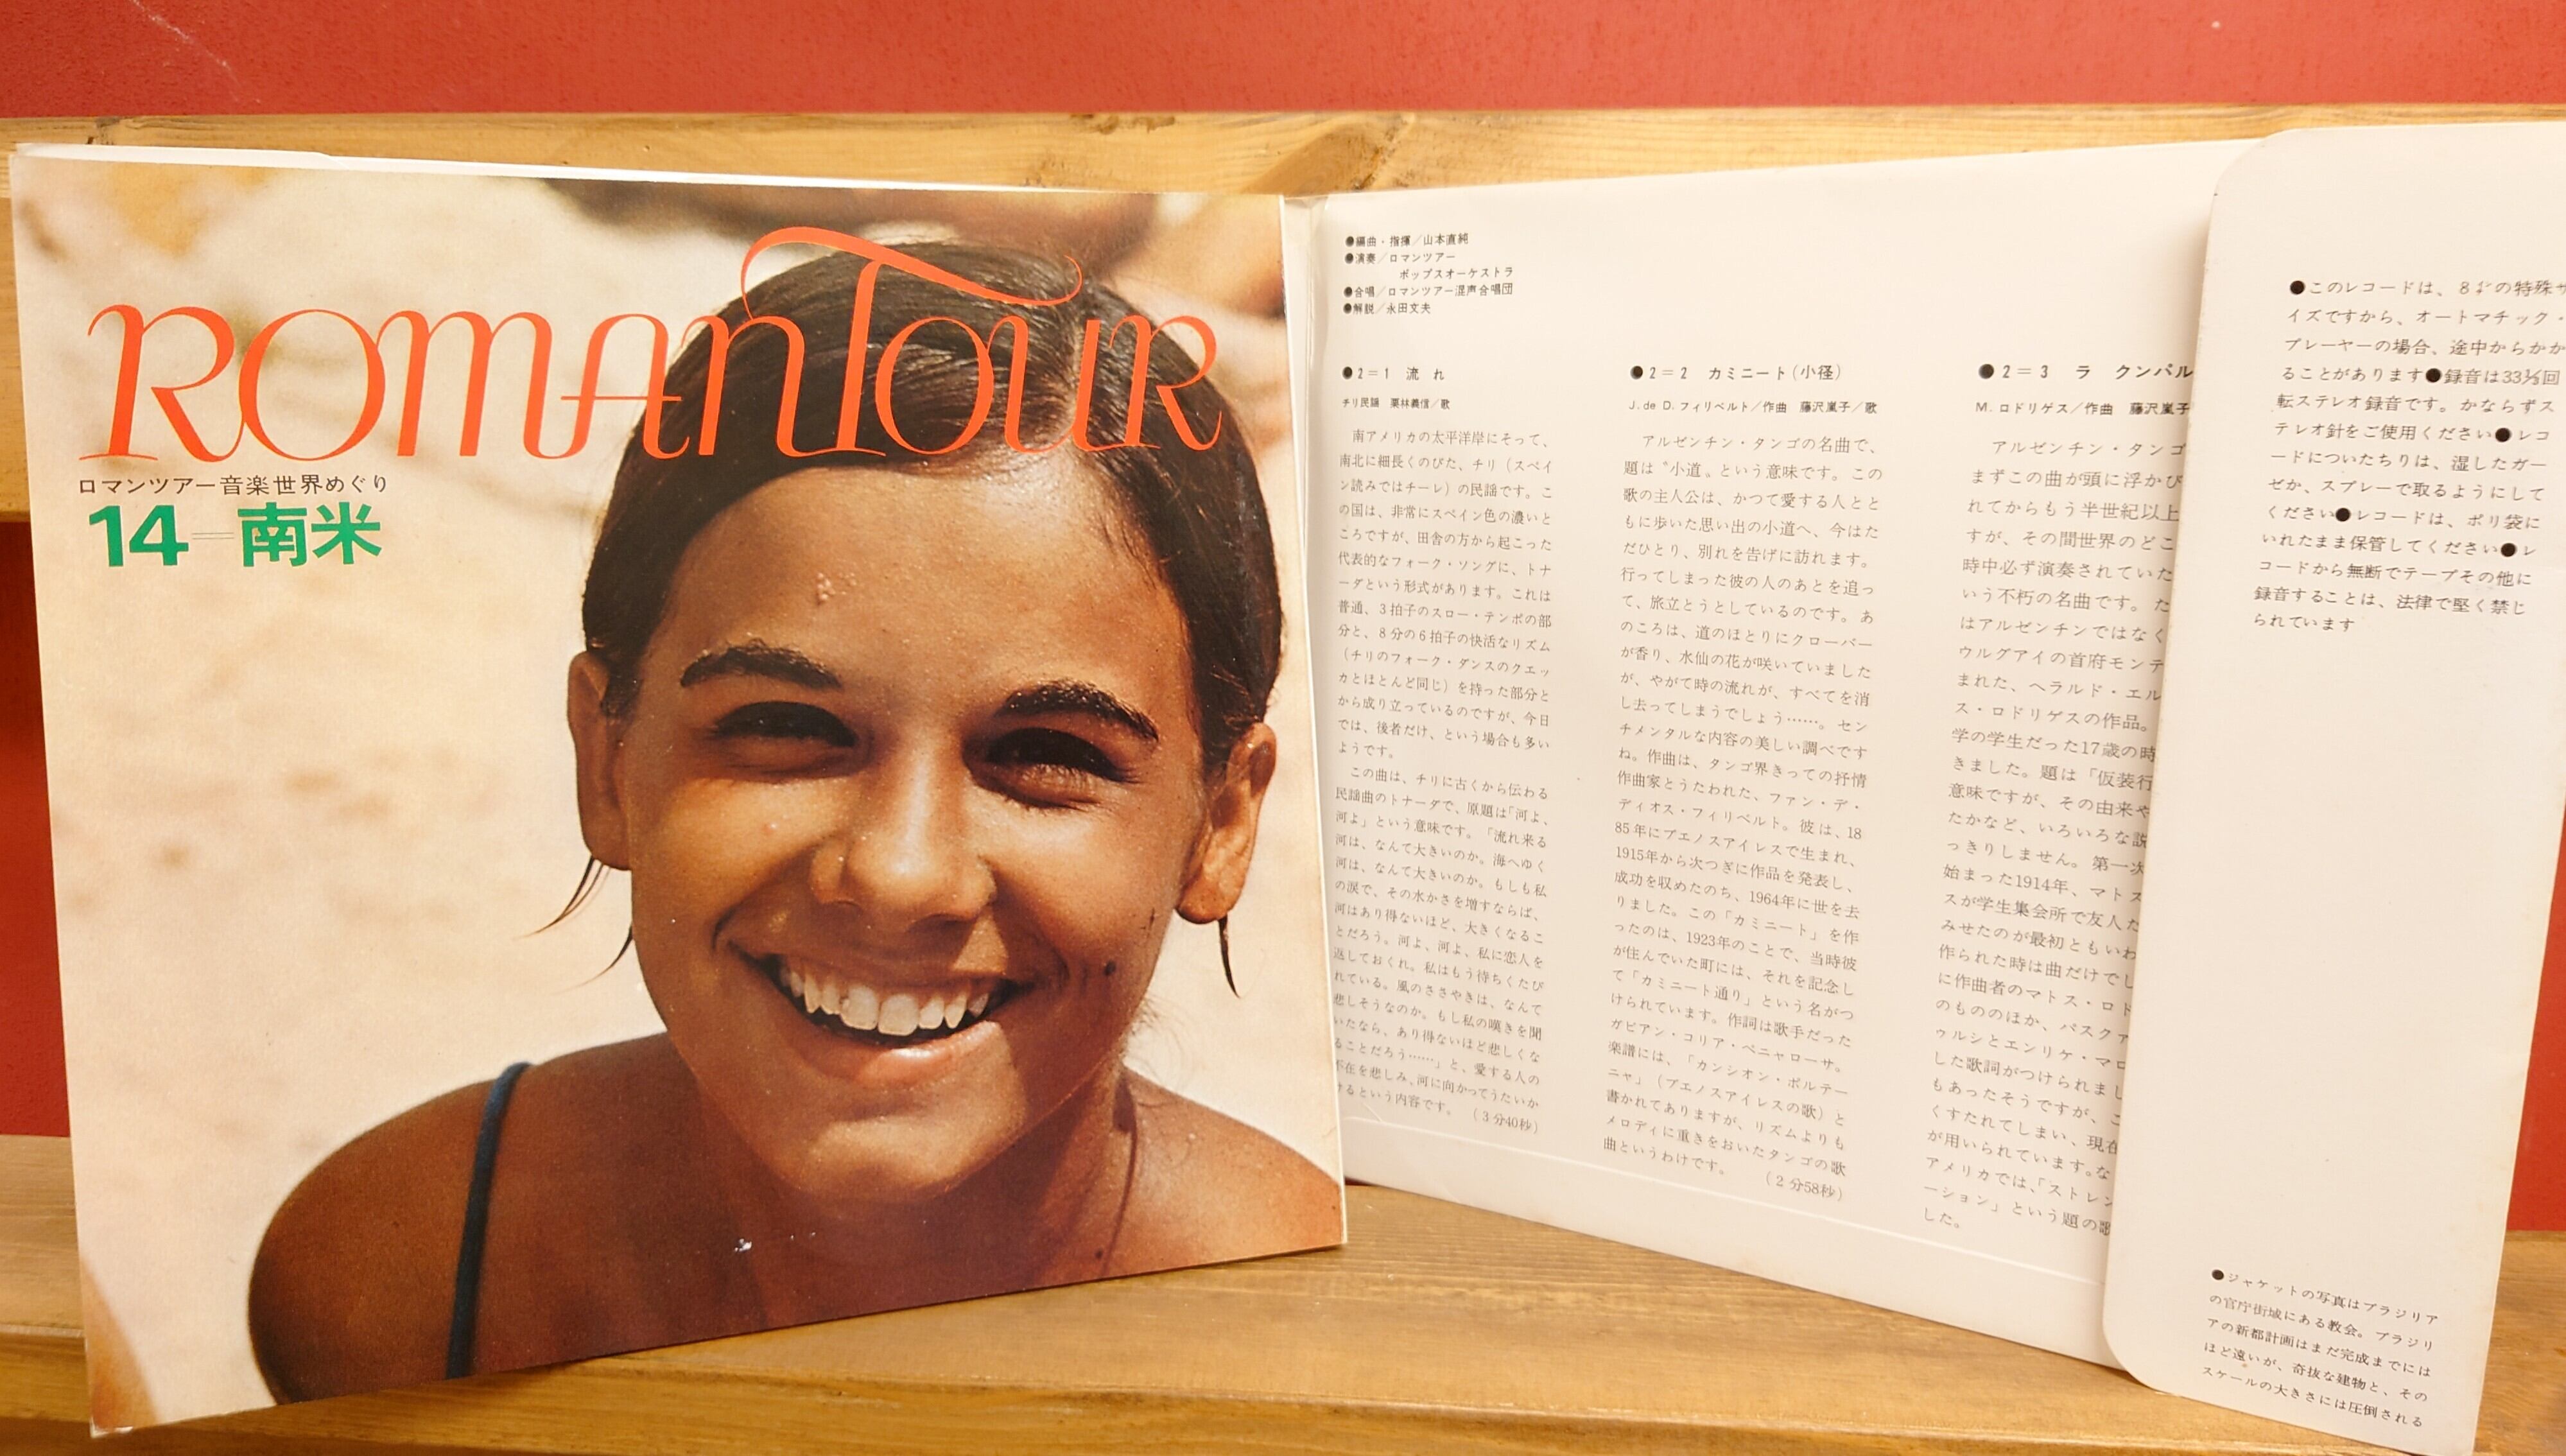 ROMAN TOUR
ロマンツアー音楽世界めぐり
14=南米
●編曲・指揮／山本直純
●演奏／ロマンツアー
ポップスオーケストラ
●合唱／ロマンツアー混声合唱団
●解説／永田文夫
●2=1 流れ
チリ民謡 栗林義信／歌
南アメリカの太平洋岸にそって、
南北に細長くのびた、チリ（スペイ
ン読みではチーレ）の民謡です。こ
の国は、非常にスペイン色の濃いと
ころですが、田舎の方から起こった
代表的なフォーク・ソングに、トナ
ーダという形式があります。これは
普通、3拍子のスロー・テンポの部
分と、8分の6拍子の快活なリズム
（チリのフォーク・ダンスのクエッ
カとほとんど同じ）を持った部分と
から成り立っているのですが、今日
では、後者だけ、という場合も多い
ようです。
この曲は、チリに古くから伝わる
民謡曲のトナーダで、原題は「河よ、
河よ」という意味です。「流れ来る
河は、なんて大きいのか。海へゆく
河は、なんて大きいのか。もしも私
の涙で、その水かさを増すならば、
河はあり得ないほど、大きくなるこ
とだろう。河よ、河よ、私に恋人を
返しておくれ。私はもう待ちくたび
れている。風のささやきは、なんて
悲しそうなのか。もし私の嘆きを聞
いたなら、あり得ないほど悲しくな
ることだろう……」と、愛する人の
不在を悲しみ、河に向かってうたいか
けるという内容です。（3分40秒）
●2=2 カミニート（小径）
J. de D. フィリベルト／作曲 藤沢嵐子／歌
アルゼンチン・タンゴの名曲で、
題は〝小道〟という意味です。この
歌の主人公は、かつて愛する人とと
もに歩いた思い出の小道へ、今はた
だひとり、別れを告げに訪れます。
行ってしまった彼の人のあとを追っ
て、旅立とうとしているのです。あ
のころは、道のほとりにクローバー
が香り、水仙の花が咲いていました
が、やがて時の流れが、すべてを消
し去ってしまうでしょう……。セン
チメンタルな内容の美しい調べです
ね。作曲は、タンゴ界きっての抒情
作曲家とうたわれた、ファン・デ・
ディオス・フィリベルト。彼は、18
85年にブエノスアイレスで生まれ、
1915年から次つぎに作品を発表し、
成功を収めたのち、1964年に世を去
りました。この「カミニート」を作
ったのは、1923年のことで、当時彼
が住んでいた町には、それを記念し
て「カミニート通り」という名がつ
けられています。作詞は歌手だった
ガビアン・コリア・ペニャローサ。
楽譜には、「カンシオン・ポルテー
ニャ」（ブエノスアイレスの歌）と
書かれてありますが、リズムよりも
メロディに重きをおいたタンゴの歌
曲というわけです。（2分58秒）
●2=3 ラ クンパル
M. ロドリゲス／作曲 藤沢嵐子
アルゼンチン・タンゴ
まずこの曲が頭に浮かび
れてからもう半世紀以上
すが、その間世界のどこ
時中必ず演奏されていた
いう不朽の名曲です。た
はアルゼンチンではなく
ウルグアイの首府モンテ
まれた、ヘラルド・エル
ス・ロドリゲスの作品。
学の学生だった17歳の時
きました。題は「仮装行
意味ですが、その由来や
たかなど、いろいろな説
っきりしません。第一次
始まった1914年、マトス
スが学生集会所で友人た
みせたのが最初ともいわ
作られた時は曲だけでし
に作曲者のマトス・ロド
のもののほか、パスクア
ゥルシとエンリケ・マロ
した歌詞がつけられまし
もあったそうですが、こ
くすたれてしまい、現在
が用いられています。な
アメリカでは、「ストレン
ーション」という題の歌
した。
●このレコードは、8㌅の特殊サ
イズですから、オートマチック・
プレーヤーの場合、途中からかか
ることがあります●録音は33⅓回
転ステレオ録音です。かならずス
テレオ針をご使用ください●レコ
ードについたちりは、湿したガー
ゼか、スプレーで取るようにして
ください●レコードは、ポリ袋に
いれたまま保管してください●レ
コードから無断でテープその他に
録音することは、法律で堅く禁じ
られています
●ジャケットの写真はブラジリア
の官庁街域にある教会。ブラジリ
アの新都計画はまだ完成までには
ほど遠いが、奇抜な建物と、その
スケールの大きさには圧倒される